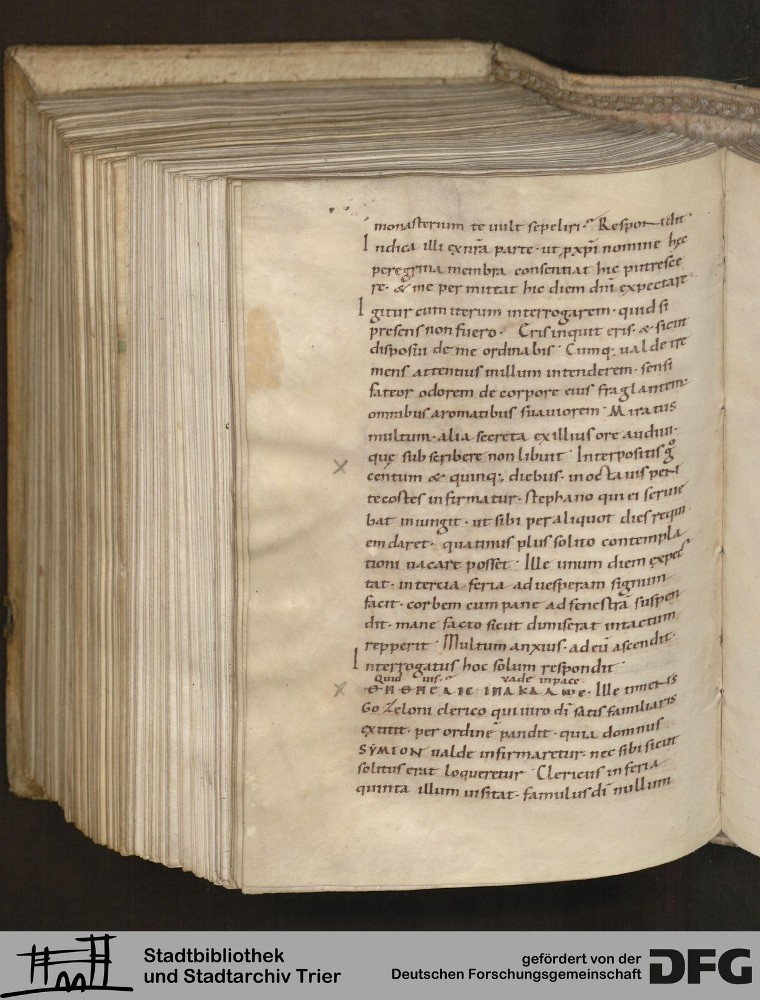 monasterium te uult sepeliri. Respondit.
Indica illi ex nr̄a parte. ut ꝓ xp̄i nomine hęc
peregrina membra consentiat hic putresce
re. & me per mittat hic diem dn̄i expectare.
Igitur cum iterum interrogarem. quid si
presens non fuero. Eris inquit eris. & sicut
disposui de me ordinabis. Cumq; ualde tre
mens attentius in illum intenderem. sensi
fateor odorem de corpore eius fraglantem.
omnibus aromatibus suauiorem. Miratus
multum. alia secreta ex illius ore audiui.
quę sub scribere non libuit. Interpositis g̊
centum & quinq;, diebus. in octauis pen
tecostes infirmatur. stephano qui ei seruie
bat iniungit. ut sibi per aliquot dies requi
em daret. quatinus plus solito contempla
tioni uacare posset. Ille unum diem expec
tat. in tercia feria ad uesperam signum
facit. corbem cum pane ad fenestrā suspen
dit. mane facto sicut dimiserat intactum
repperit. Multum anxius. ad eū ascendit.
Interrogatus hoc solum respondit.
Quid uis. uade in pace.
Ille timens
Gozeloni clerico qui uiro dī satis familiaris
extitit. per ordinē pandit. quia domnus
SYMEON ualde infirmaretur. nec sibi sicut
solitus erat loqueretur. Clericus in feria
quinta illum uisitat. famulus dī nullum
Stadtbibliothek
und Stadtarchiv Trier
gefördert von der
Deutschen Forschungsgemeinschaft
DFG